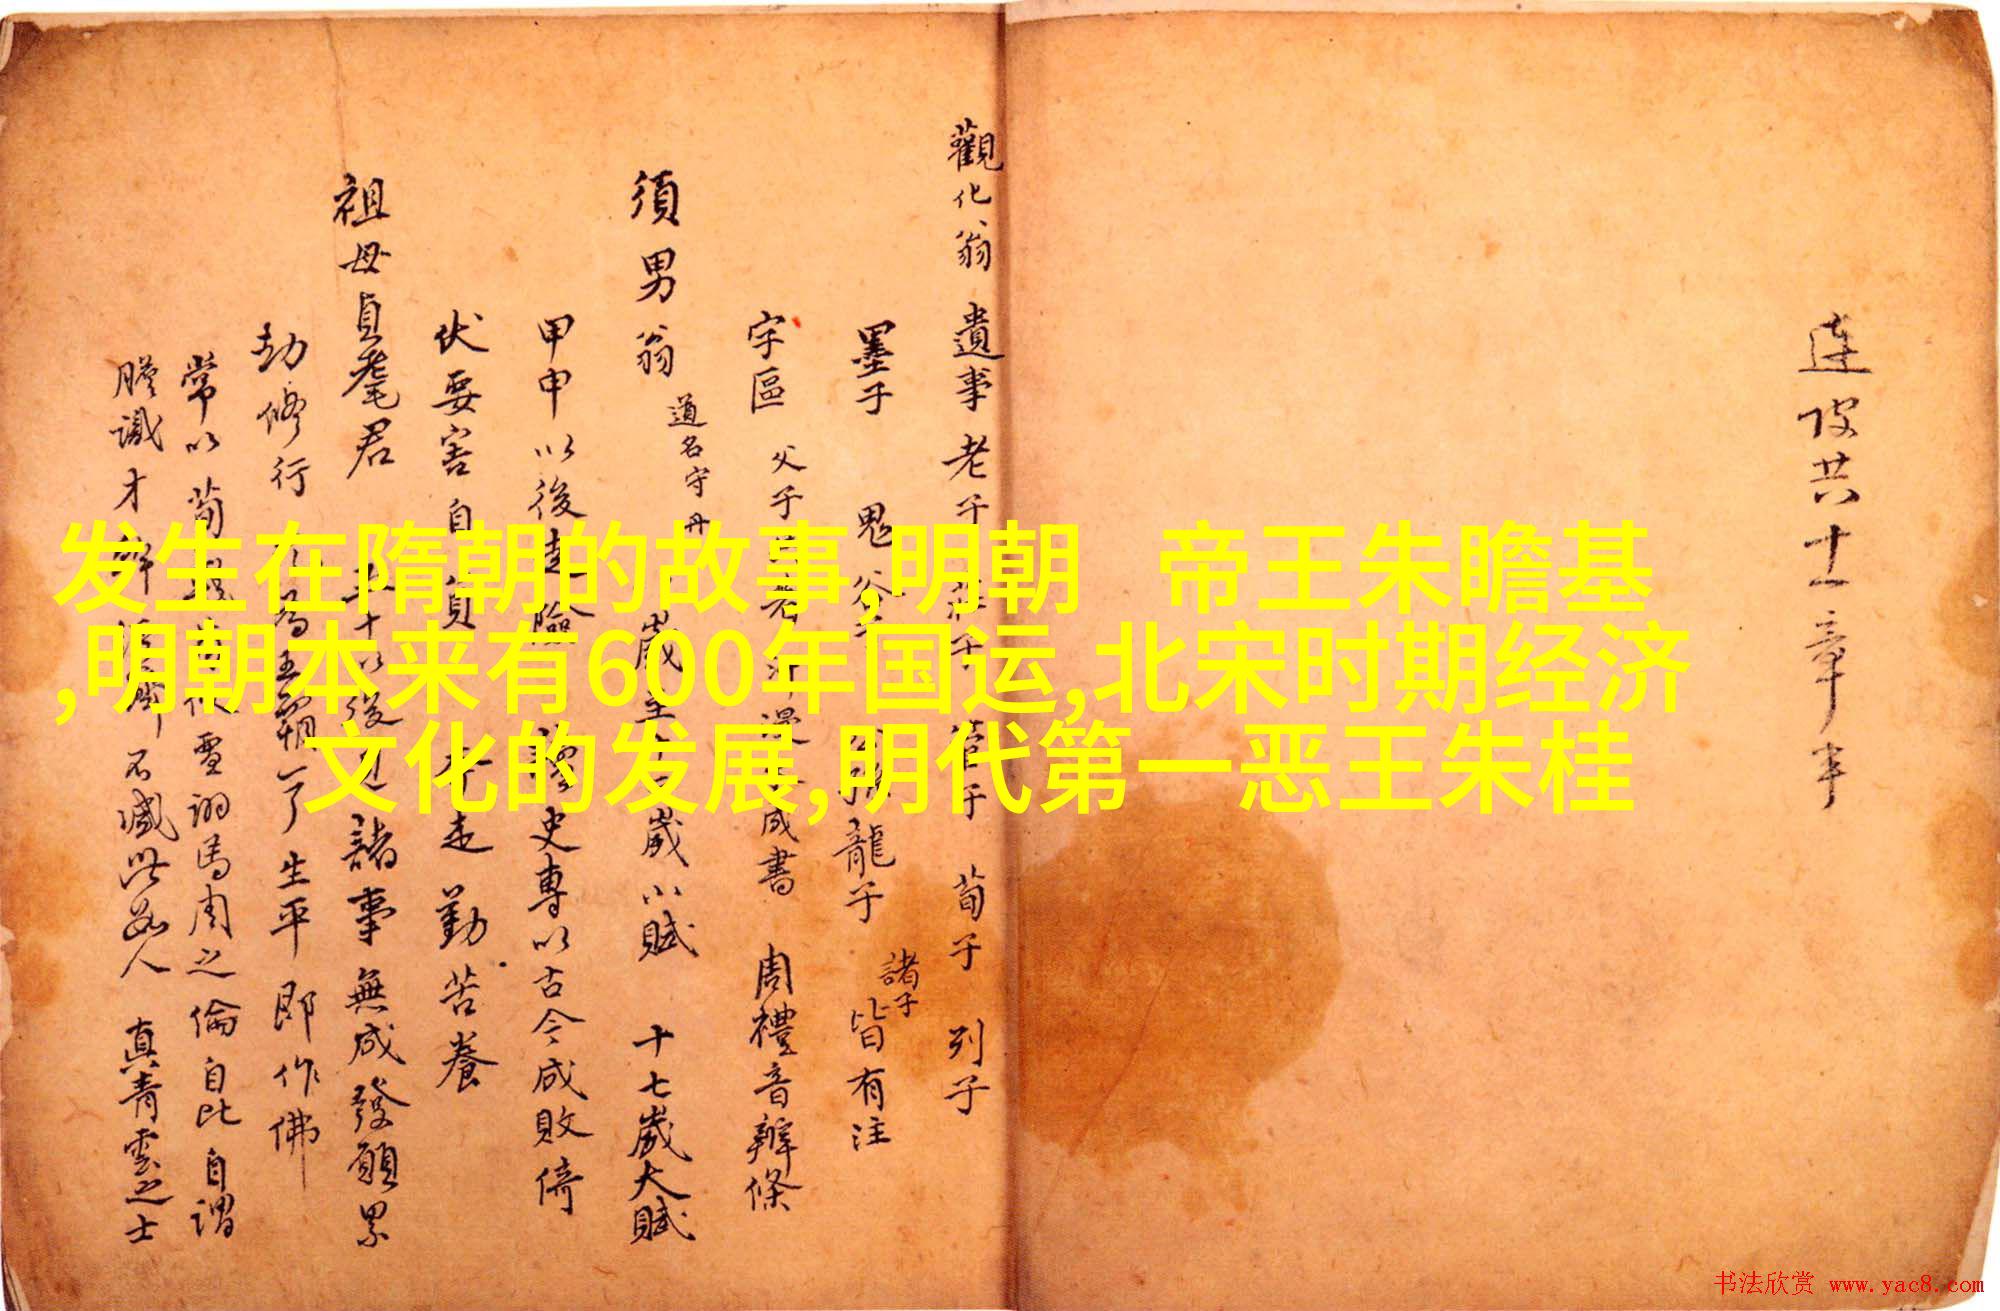 连陂共十一章半
觀化翁 遺事 老子 莊子 管子 荀子 列子
墨子 鬼谷子 公孫龍子 諸子 皆有注
字區 父子 成書 周禮音辨條
須男翁 道名守丹 歲 歲小賦 十七歲大賦
甲申以後走險 史專以古今成敗倚
伏要害自 走勤苦養
祖母貞耄君 五十以後 諸事無成發願累
劫修行 了生平即作佛
常以荀 馬周之倫自比自謂
膽識才 不減此安人 真青雲之士
发生在隋朝的故事,明朝 帝王朱瞻基
,明朝本来有600年国运,北宋时期经济
文化的发展,明代第一恶王朱桂
书法欣赏 www.yac8.com